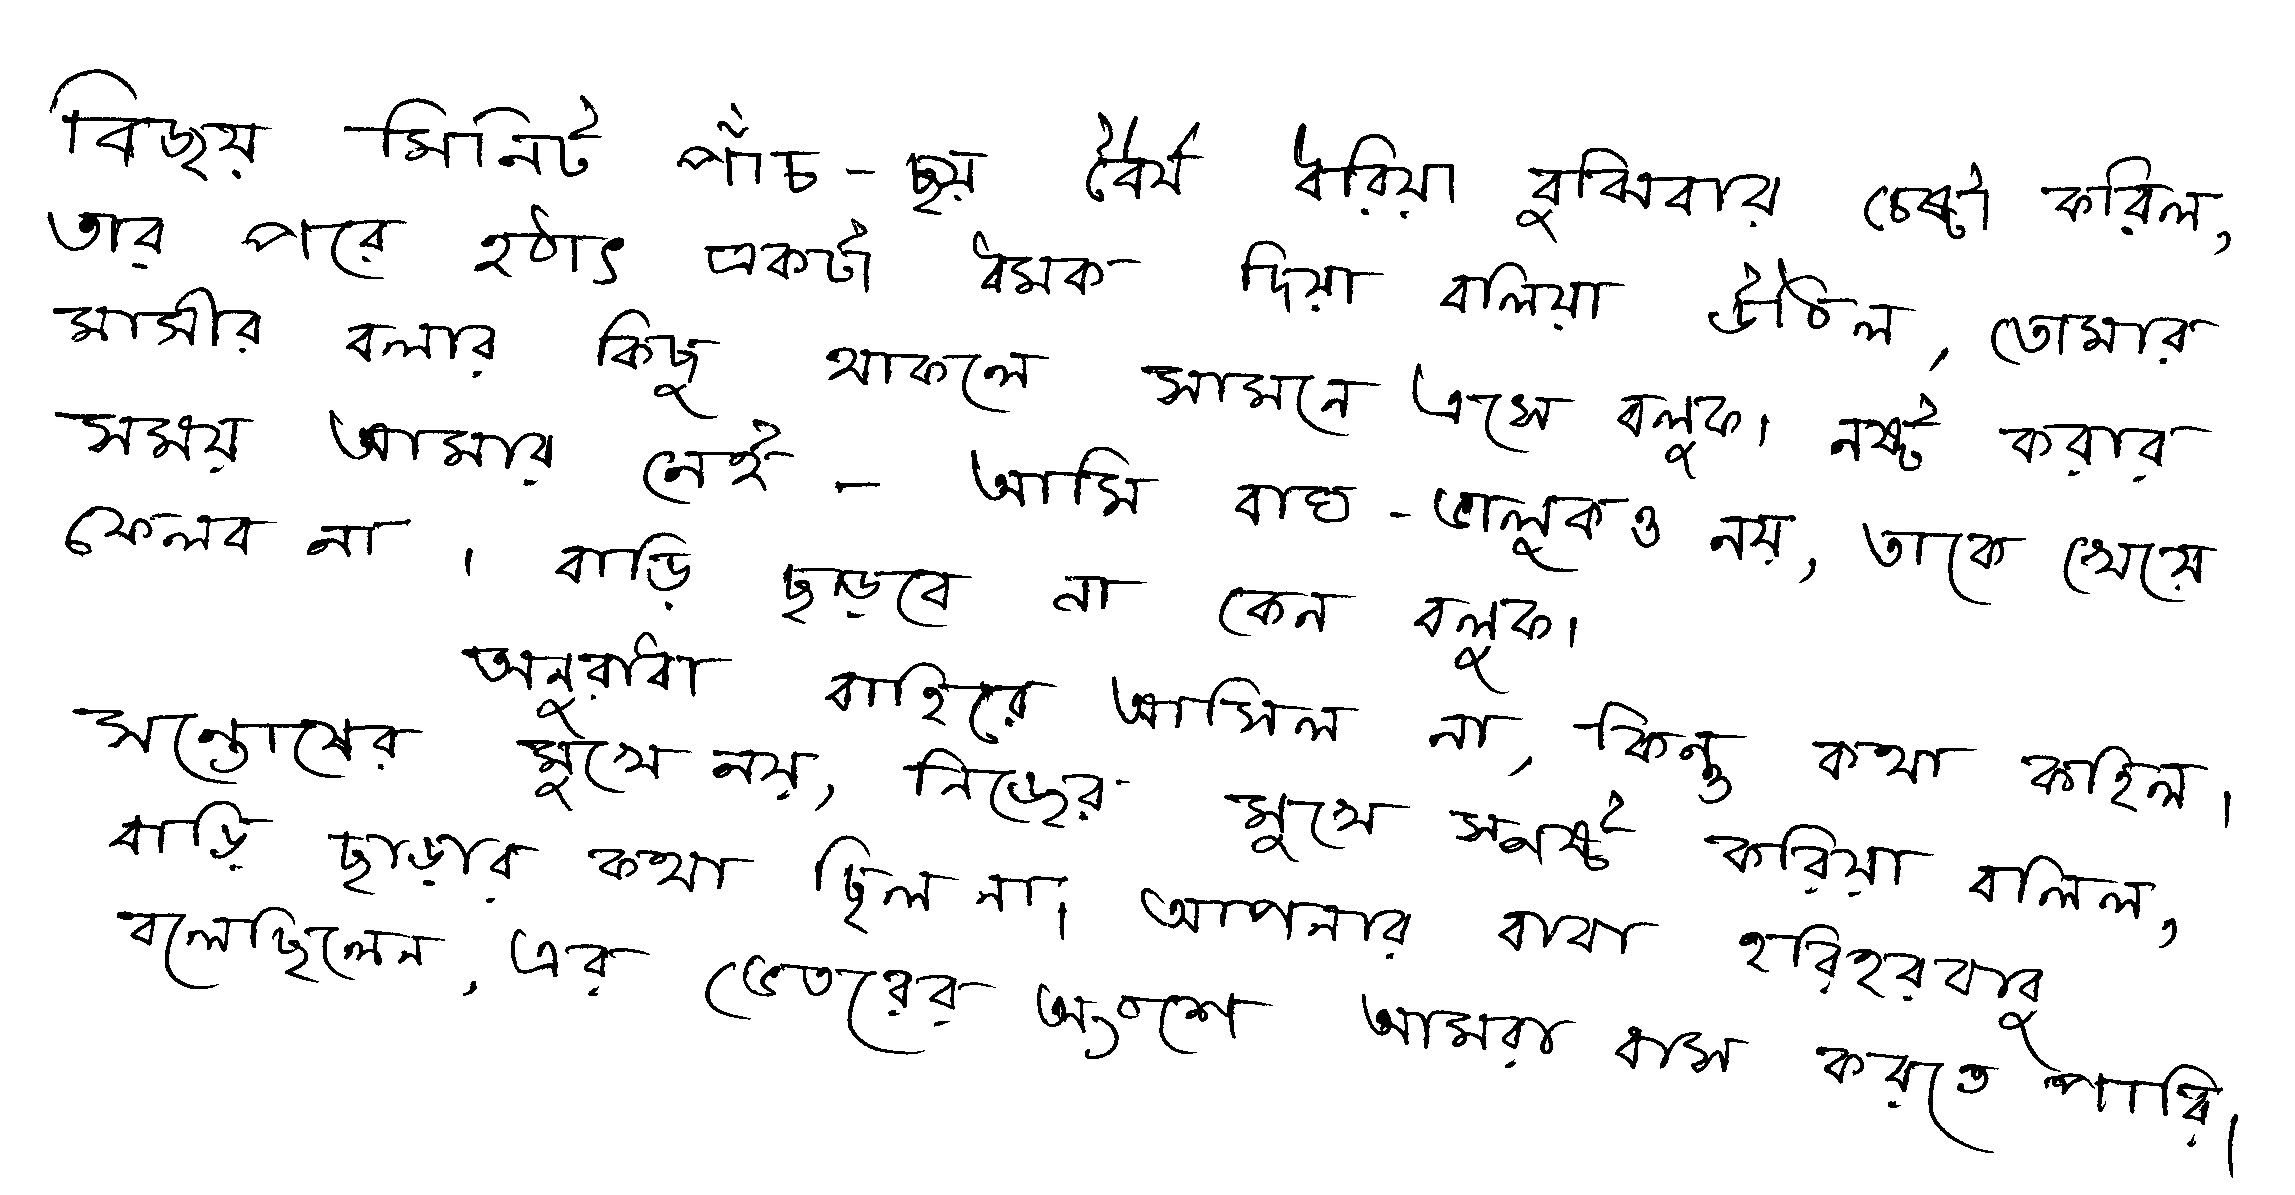 বিজয় মিনিট পাঁচ-ছয় ধৈর্য ধরিয়া বুঝিবার চেষ্টা করিল,
তার পরে হঠাৎ একটা ধমক দিয়া বলিয়া উঠিল, তোমার
মাসীর বলার কিছু থাকলে সামনে এসে বলুক। নষ্ট করার
সময় আমার নেই - আমি বাঘ-ভালুকও নয়, তাকে খেয়ে
ফেলব না। বাড়ি ছাড়বে না কেন বলুক।
অনুরাধা বাহিরে আসিল না, কিন্তু কথা কহিল।
সন্তোষের মুখে নয়, নিজের মুখে স্পষ্ট করিয়া বলিল,
বাড়ি ছাড়ার কথা ছিল না। আপনার বাবা হরিহরবাবু
বলেছিলেন, এর ভেতরের অংশে আমরা বাস করতে পারি।